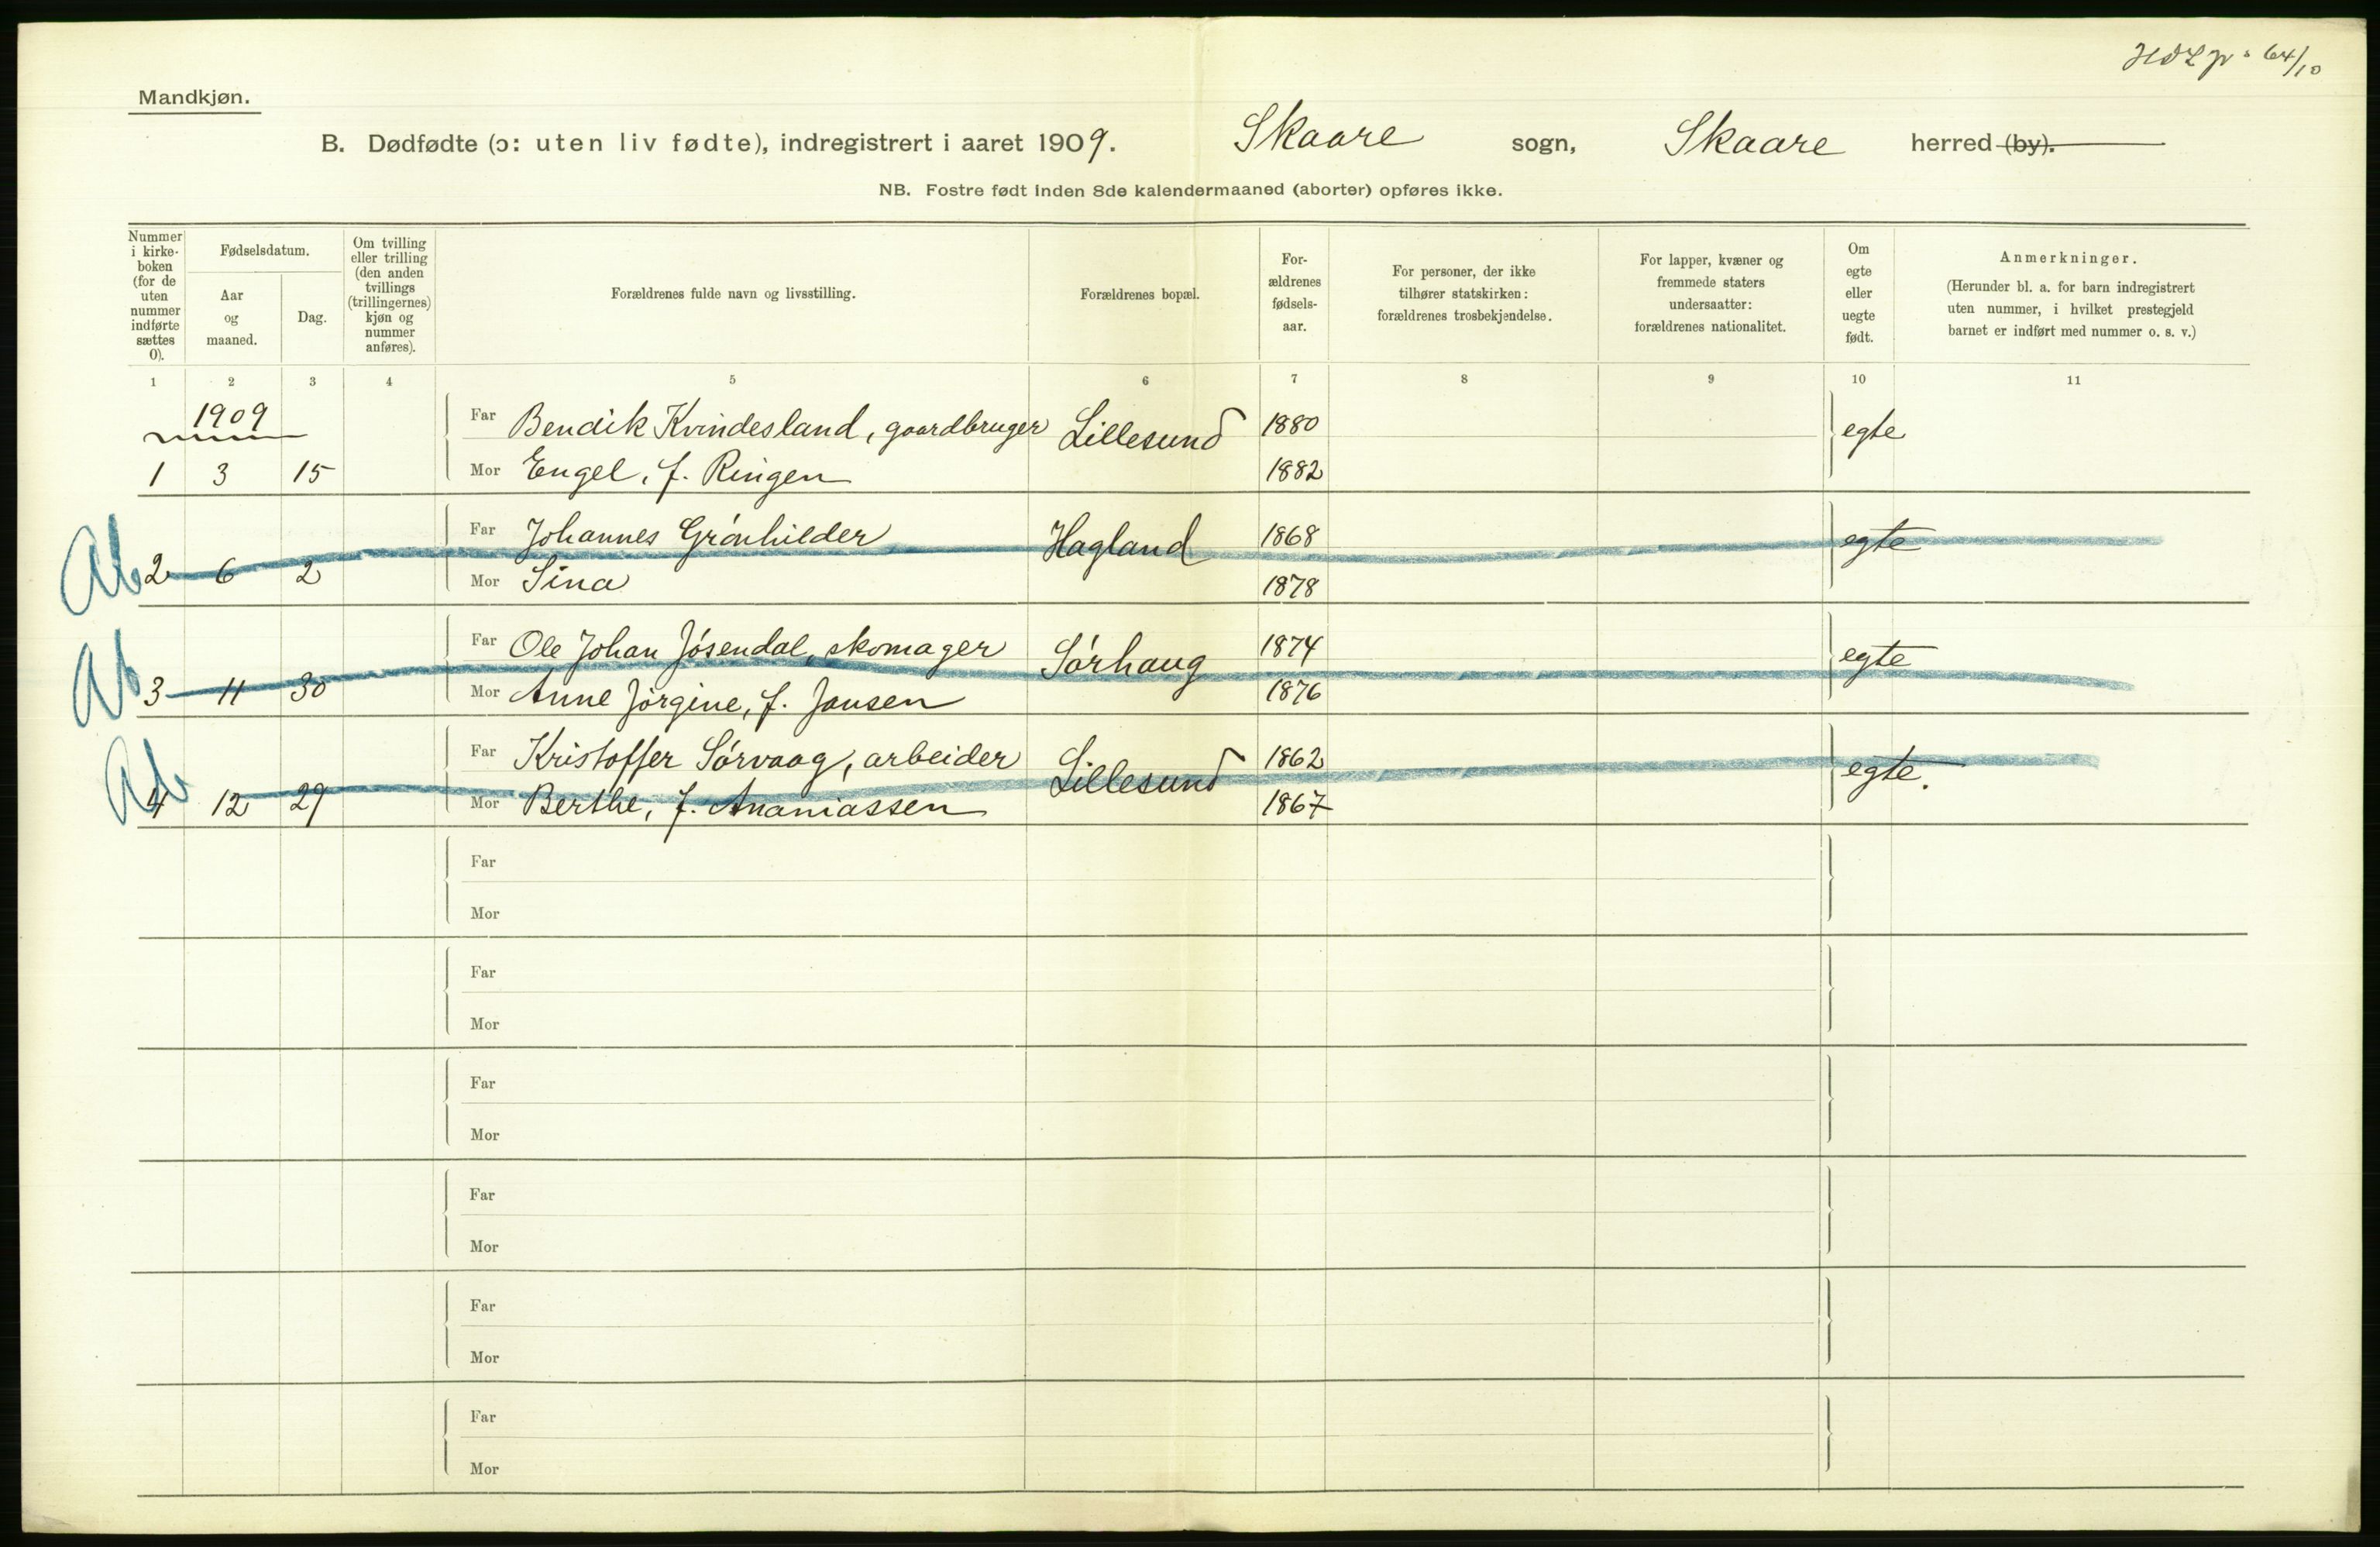 64/10
Mandkjøn.
B. Dødfødte (ɔ: uten liv fødte), indregistrert i aaret 1909. Skaare sogn, Skaare herred (by).
NB. Fostre født inden 8de kalendermaaned (aborter) opføres ikke.
Nummer i kirke-boken (for de uten nummer indførte sættes 0).
Fødselsdatum.
Aar og maaned.
Dag.
Om tvilling eller trilling (den anden tvillings (trillingernes) kjøn og nummer anføres).
Forældrenes fulde navn og livsstilling.
Forældrenes bopæl.
For-ældrenes fødsels-aar.
For personer, der ikke tilhører statskirken: forældrenes trosbekjendelse.
For lapper, kvæner og fremmede staters undersaatter: forældrenes nationalitet.
Om egte eller uegte født.
Anmerkninger.
(Herunder bl. a. for barn indregistrert uten nummer, i hvilket prestegjeld barnet er indført med nummer o. s. v.)
1 2 3 4 5 6 7 8 9 10 11
1909
Far Bendik Kvindesland, gaardbruger Lillesund 1880 egte
1 3 15 Mor Engel, f. Ringen 1882
Far Johannes Grönhilder Hagland 1868 egte
Ab 2 6 2 Mor Sina 1878
Far Ole Johan Jósendal, skomager Sörhaug 1874 egte
Ab 3 11 30 Mor Anne Jörgine, f. Jansen 1876
Far Kristoffer Sörvaag, arbeider Lillesund 1862 egte.
Ab 4 12 29 Mor Berthe, f. Ananiassen 1867
Far
Mor
Far
Mor
Far
Mor
Far
Mor
Far
Mor
Far
Mor